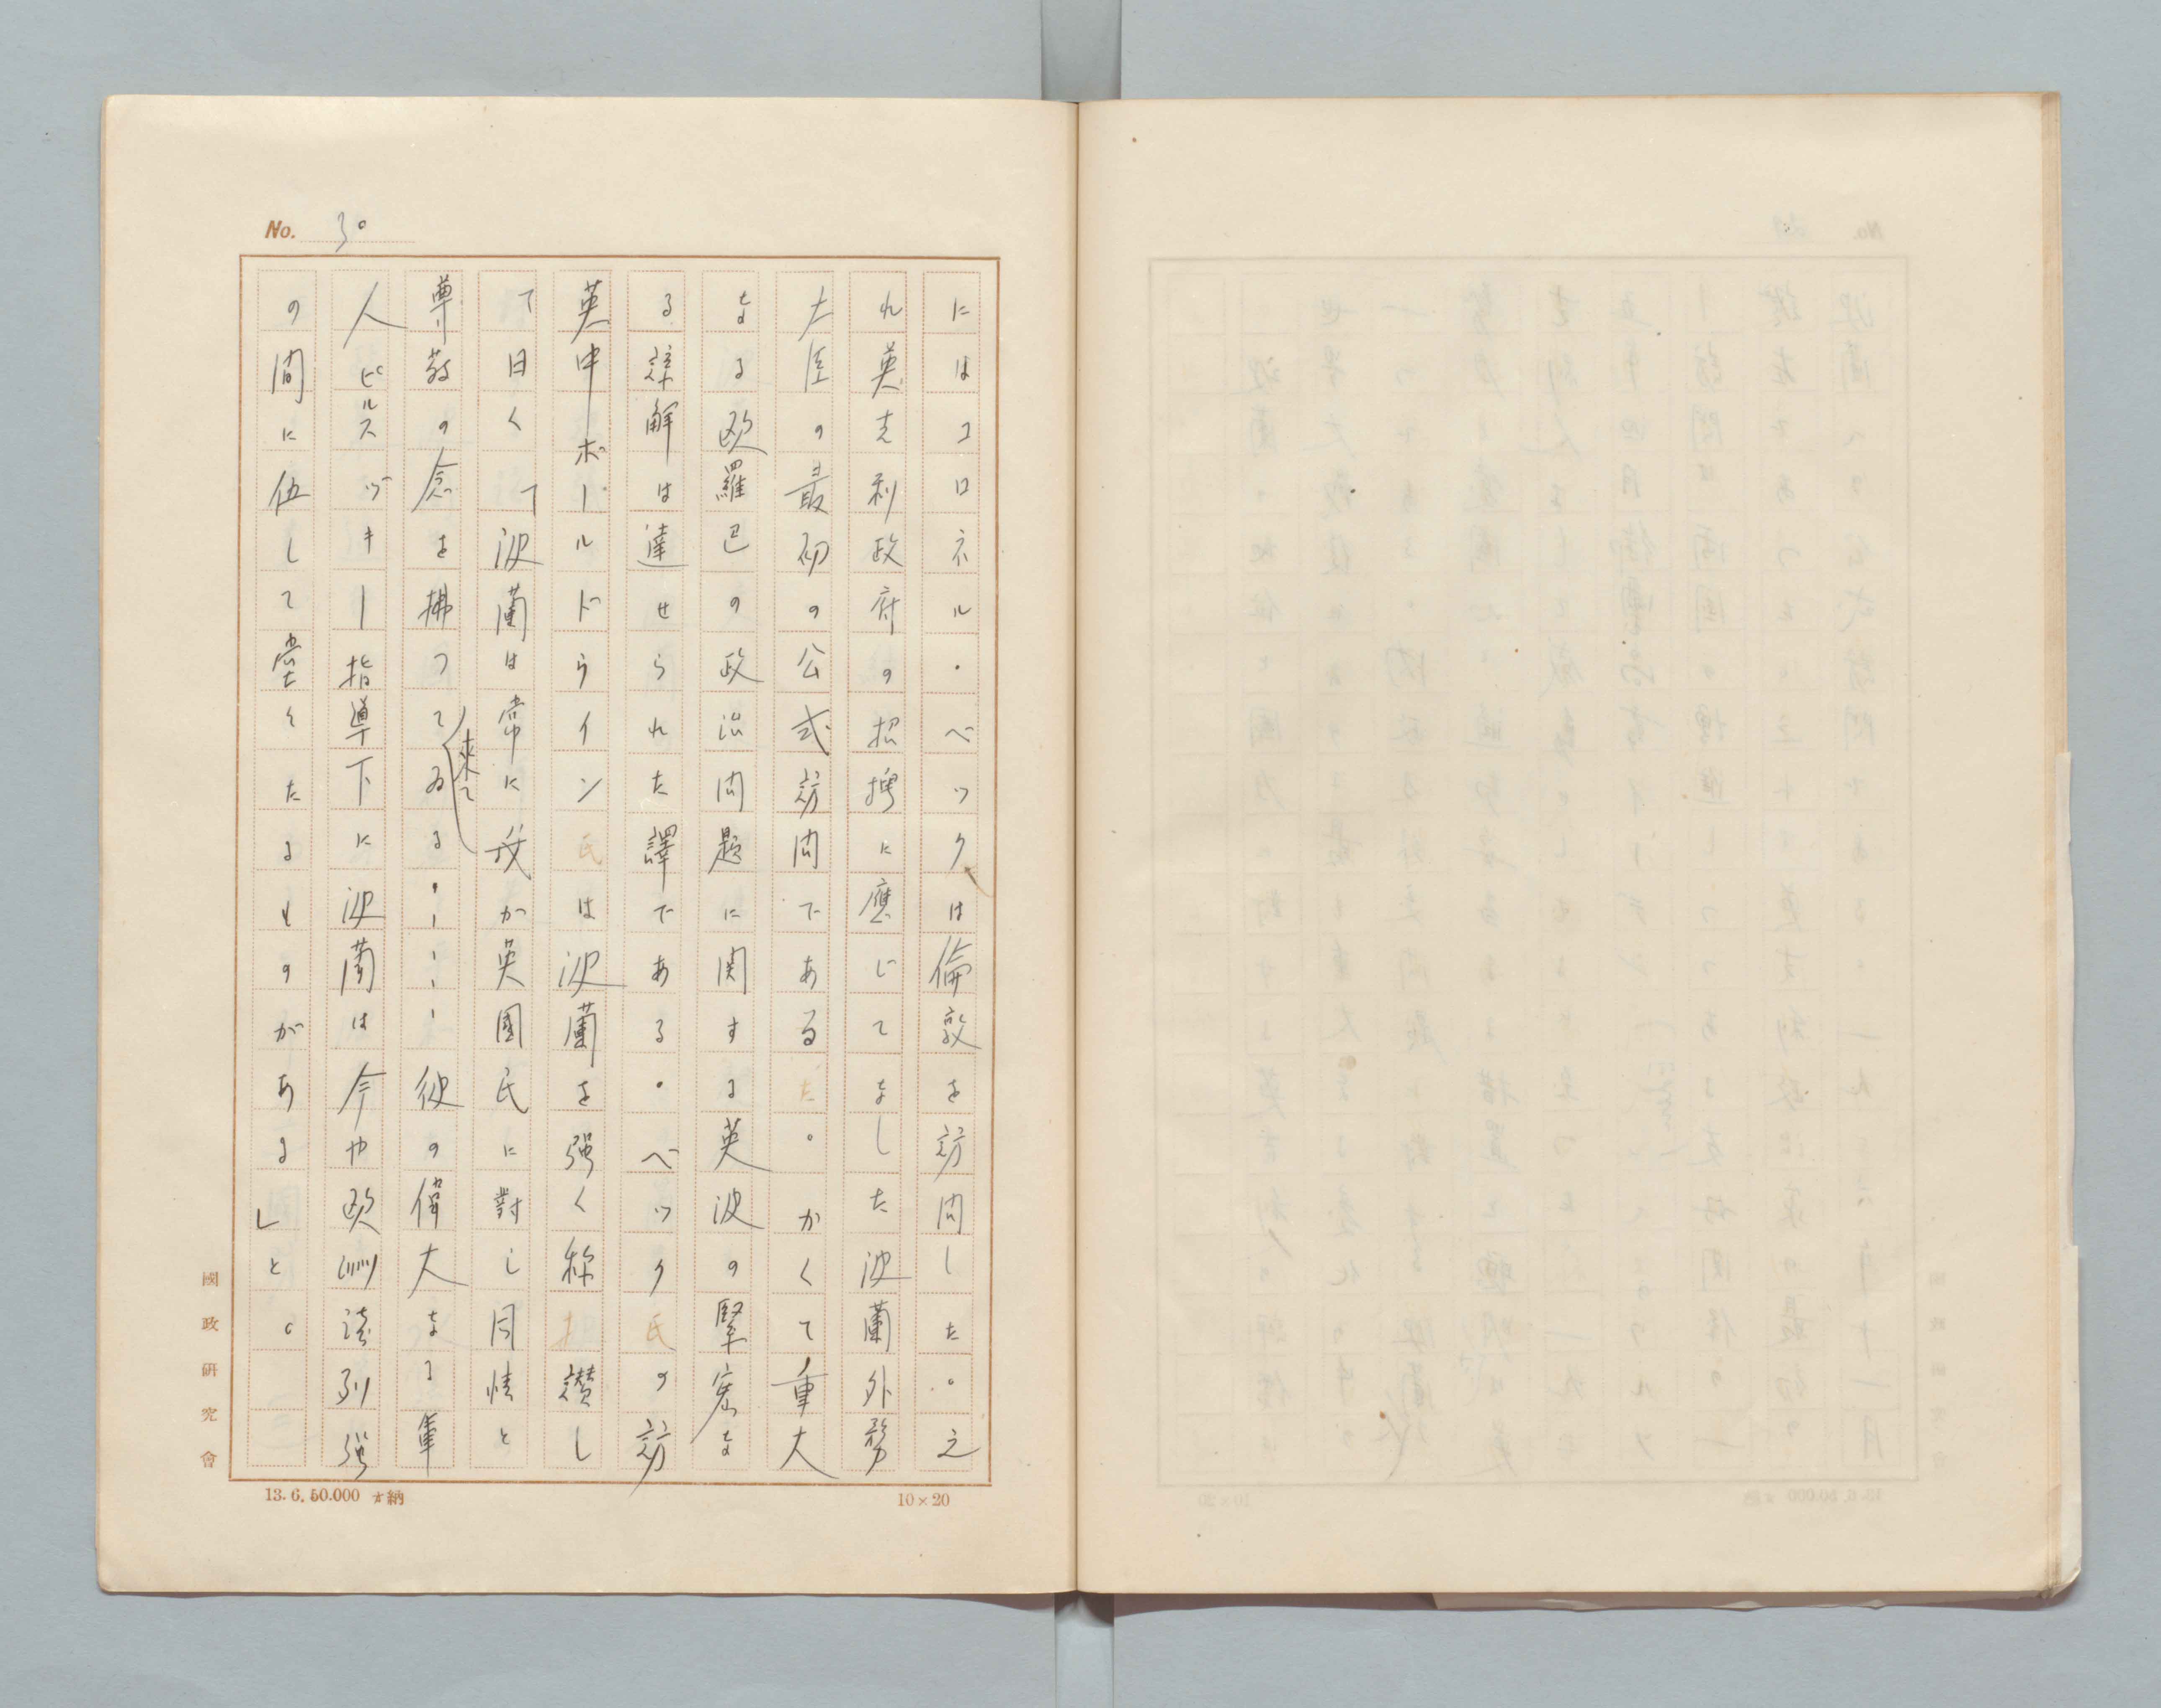 No. 30
にはコロネル・ベックは倫敦を訪問した。之
れ英吉利政府の招聘に應じてなした波蘭外務
大臣の最初の公式訪問であるた。かくて重大
なる欧羅巴の政治問題に関する英波の緊密な
る諒解は達せられた譯である。ベック氏の訪
英中ボールドウイン氏は波蘭を強く称讃し
て曰く「波蘭は常に我が英國民に對し同情と
来て
尊敬の念を拂つてゐる……彼の偉大なる軍
人ピルスヅキー指導下に波蘭は今や欧洲諸列強
の間に伍して堂々たるものがある」と。
國政研究會
13.6.50.000 納
10×20